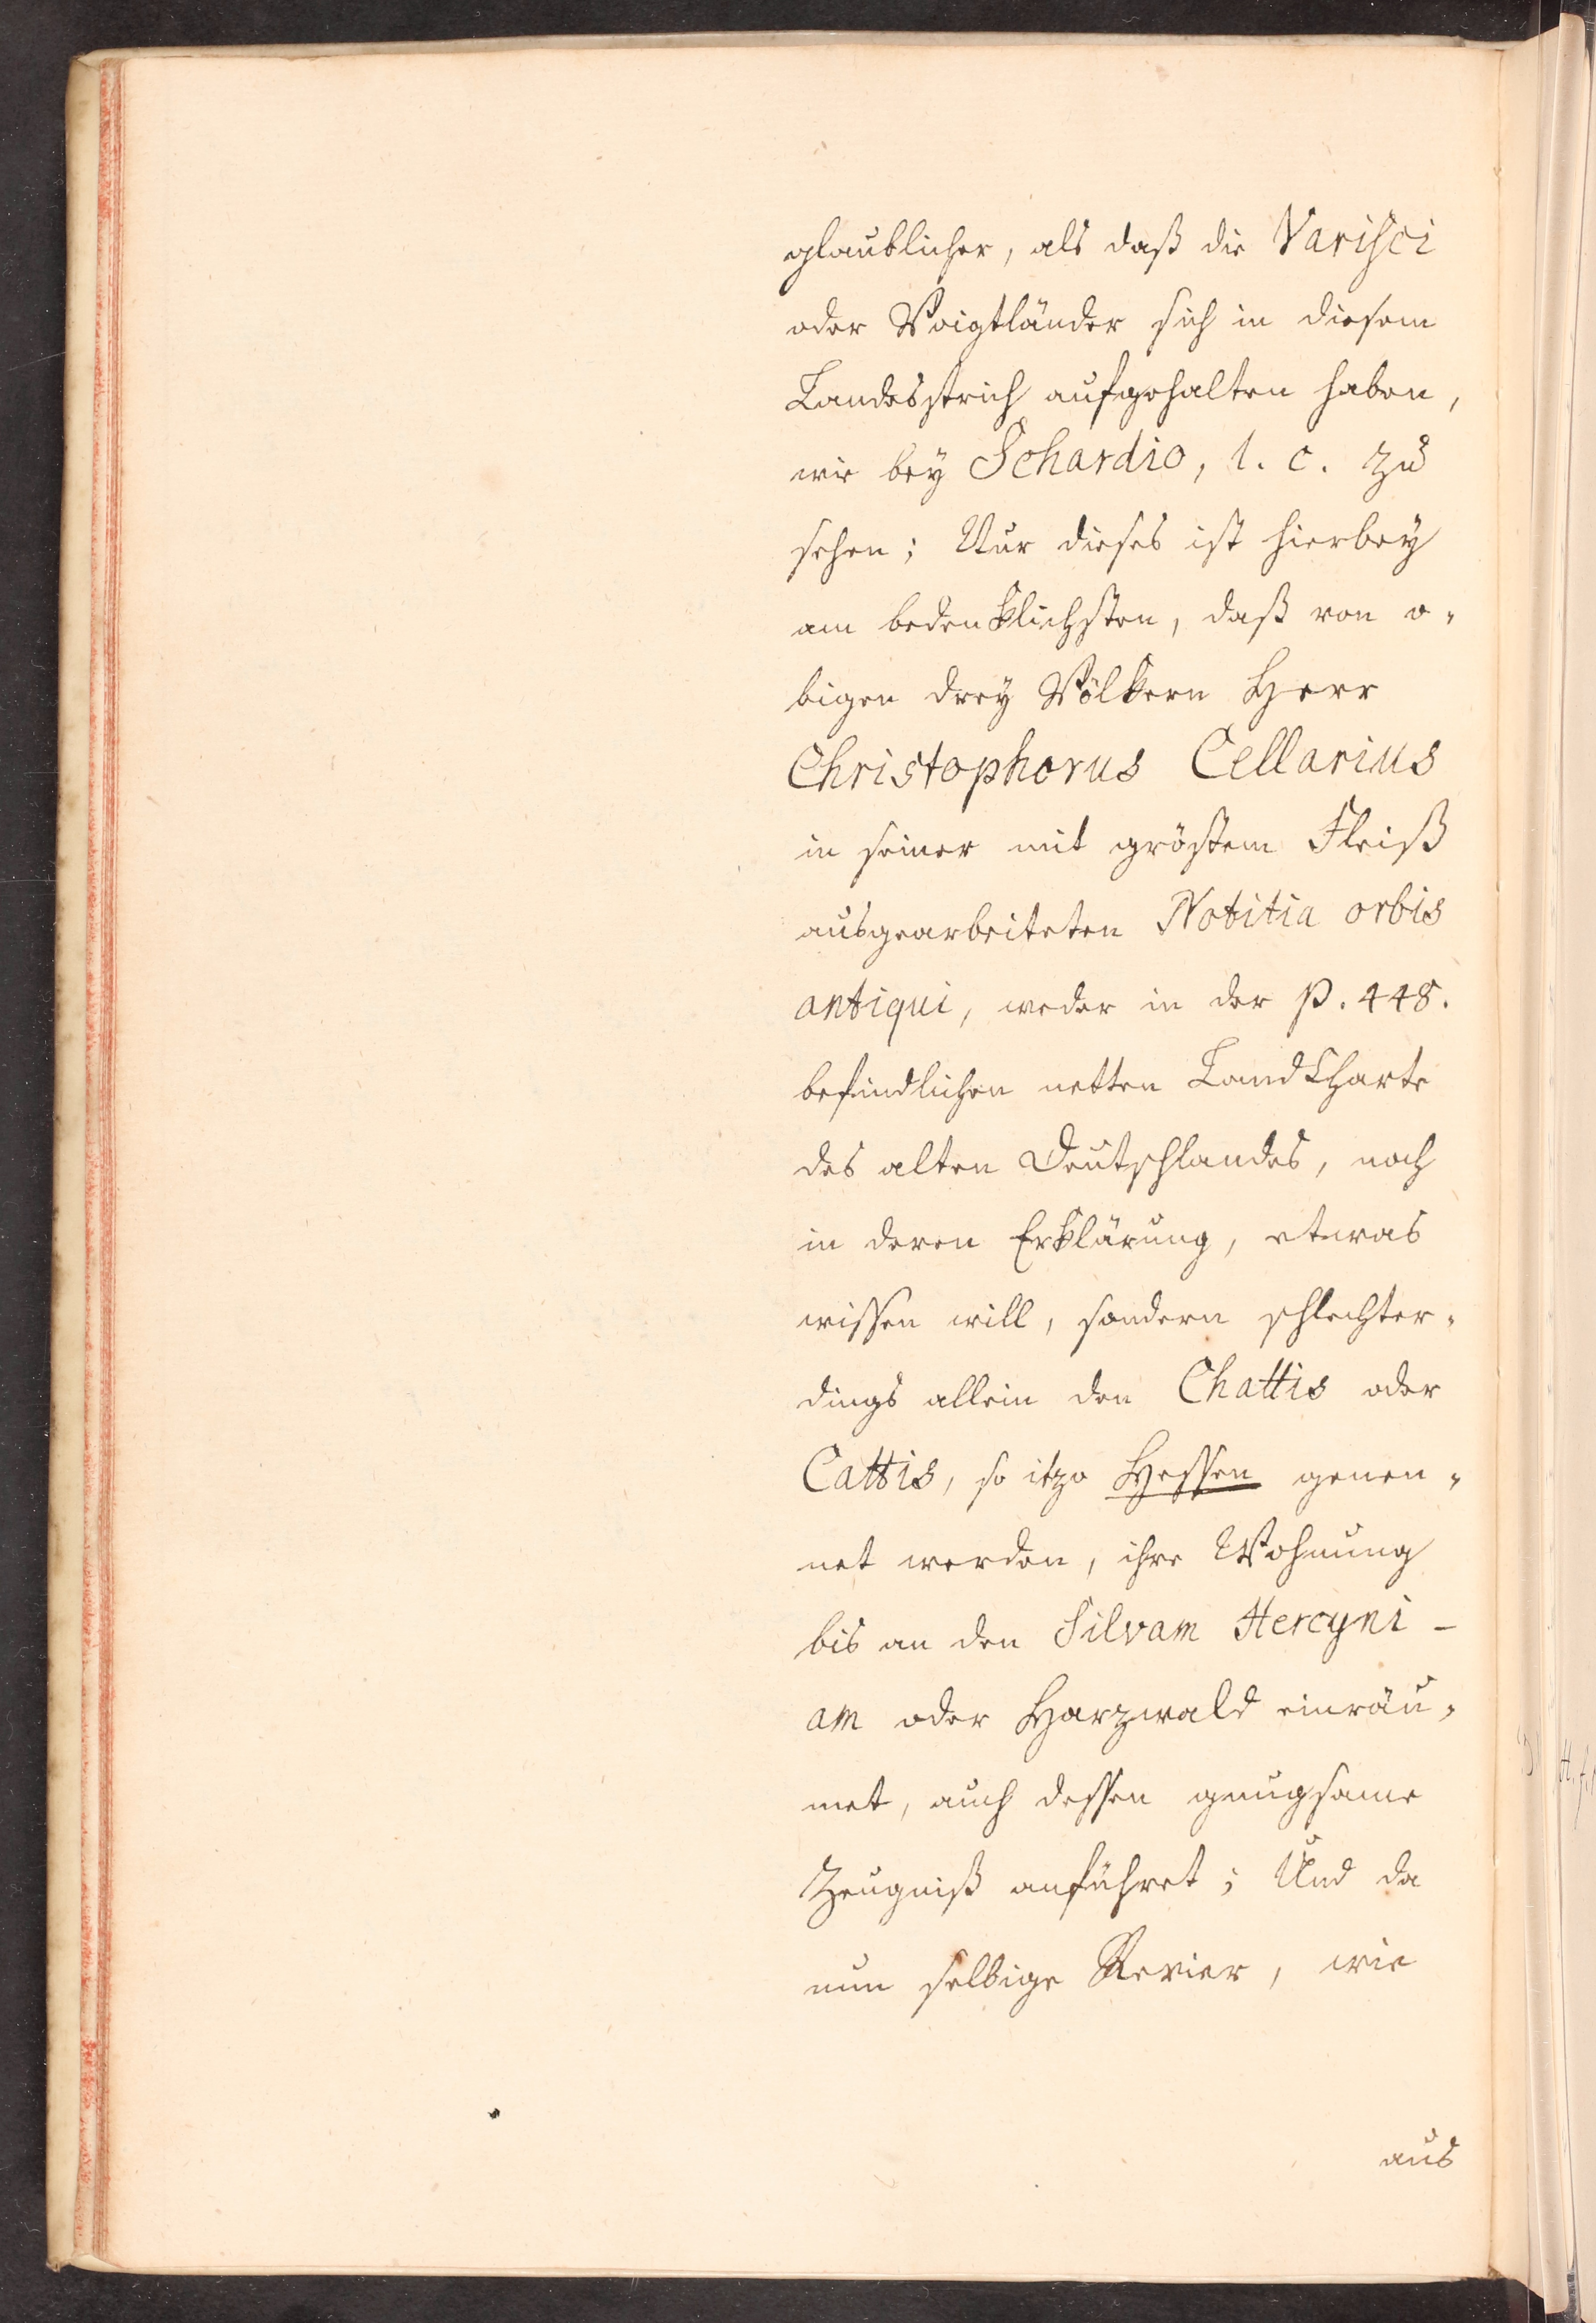 glaublicher, als daß die Varisci
oder Voigtländer sich in diesem
Landesstrich aufgehalten haben,
wie bey Schardio, l. c. zu
sehen; Nur dieses ist hierbey
am bedenklichsten, daß von o-
bigen drey Völkern Herr
Christophorus Cellarius
in seiner mit gröstem Fleiß
ausgearbeiteten Notitia orbis
antiqui, weder in der p. 448.
befindlichen netten Landkharte
des alten Deutschlandes, noch
in deren Erklärung, etwas
wissen will, sondern schlechter-
dings allein den Chattis oder
Cattis, so itzo Hessen genen-
net werden, ihre Wohnung
bis an den Silvam Hercyni-
am oder Harzwald einräu-
met, auch dessen gnugsame
Zeugniß anführet; Und da
nun selbige Revier, wie
aus